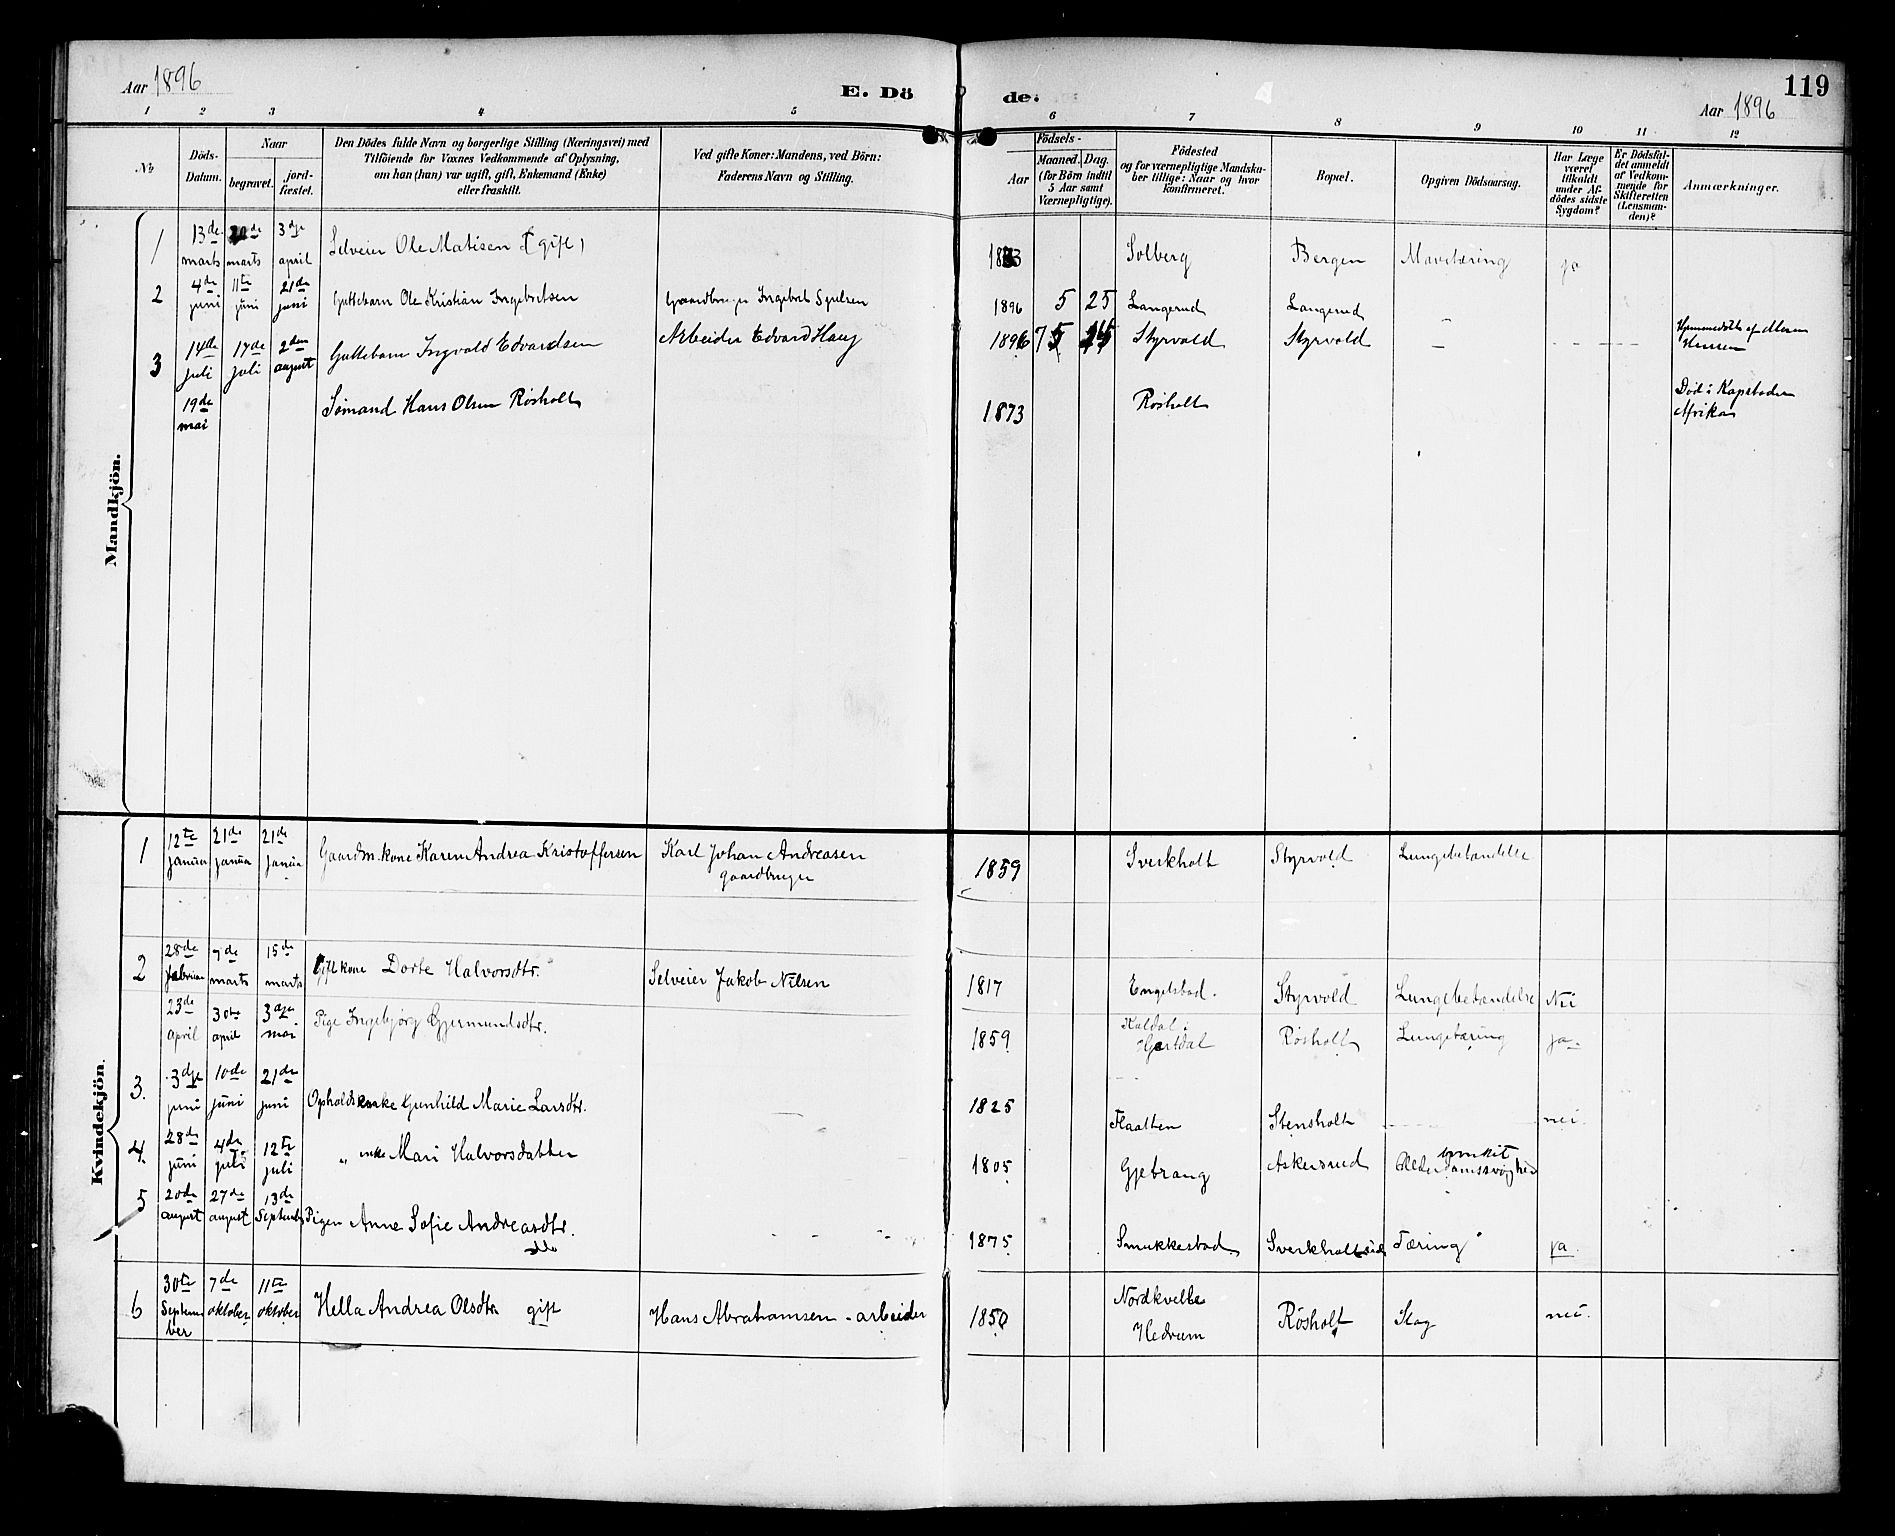 Aar 1896
E. Döde.
119
Aar 1896
1 2 3 4 5 6 7 8 9 10 11 12
No
Döds-Datum.
Naar
begravet.
jordfæstet.
Den Dödes fulde Navn og borgerlige Stilling (Næringsvei) med
Tilföiende for Voxnes Vedkommende af Oplysning,
om han (hun) var ugift, gift, Enkemand (Enke)
eller fraskilt.
Ved gifte Koner: Mandens, ved Börn:
Faderens Navn og Stilling.
Födsels-
Aar
Maaned. Dag.
(for Börn indtil
5 Aar samt
Værnepligtige).
Födested
og for værnepligtige Mandska-
ber tillige: Naar og hvor
konfirmeret.
Bopæl.
Opgiven Dödsaarsag.
Har Læge
været
tilkaldt
under Af-
dödes sidste
Sygdom?
Er Dödsfal-
det anmeldt
af Vedkom-
mende for
Skifteretten
(Lensman-
den)?
Anmærkninger.
Mandkjön.
1 13de marts marts 3dje april Selveier Ole Matisen (gift) Solberg Bergen Mavetæring ja
2 4de juni 11te juni 21de juni Guttebarn Ole Kristian Ingebretsen Gaardbruger Ingebret 1896 5 25 Langerud Langerud —
3 14de juli 17de juli 2den august Guttebarn Ingvald Edvardsen Arbeider Edvard Haug 1896 7 Styrvold Styrvold — Hjemmedøbt af
19de mai Sømand Hans Olsen Røsholt 1873 Røsholt Død i Kapstaden
Afrika
Kvindekjön.
1 12te januar 21de januar 21de januar Gaardm. kone Karen Andrea Kristoffersen Karl Johan Andreasen
gaardbruger 1859 Sverkholt Styrvold Lungebetændelse
2 28de februar 9de marts 15de marts Gift kone Dorte Halvorsdtr. Selveier Jakob Nilsen 1817 Engelstad. Styrvold Lungebetændelse Nei
23de april 30te april 3dje mai Pige Ingebjørg Gjermundsdtr. 1859 Kaldal i
Hjertdal Røsholt Lungetæring ja.
3. 3dje juni 10de juni 21de juni Opholdsenke Gunhild Marie Larsdtr. 1825 Flaatten Stensholt nei.
4. 28de juni 4de juli 12te juli „ enke Mari Halvorsdatter 1805 Gjetrang Askersrud
5 20de august 27de august 13de September Pigen Anne Sofie Andreasdtr. 1875 Smukkestad Sverkholt Tæring ja
6 30te September 7de oktober 11te oktober Hella Andrea Olsdtr gift Hans Abrahamsen - arbeider 1850 Nordkvelle
Hedrum Røsholt Slag nei.